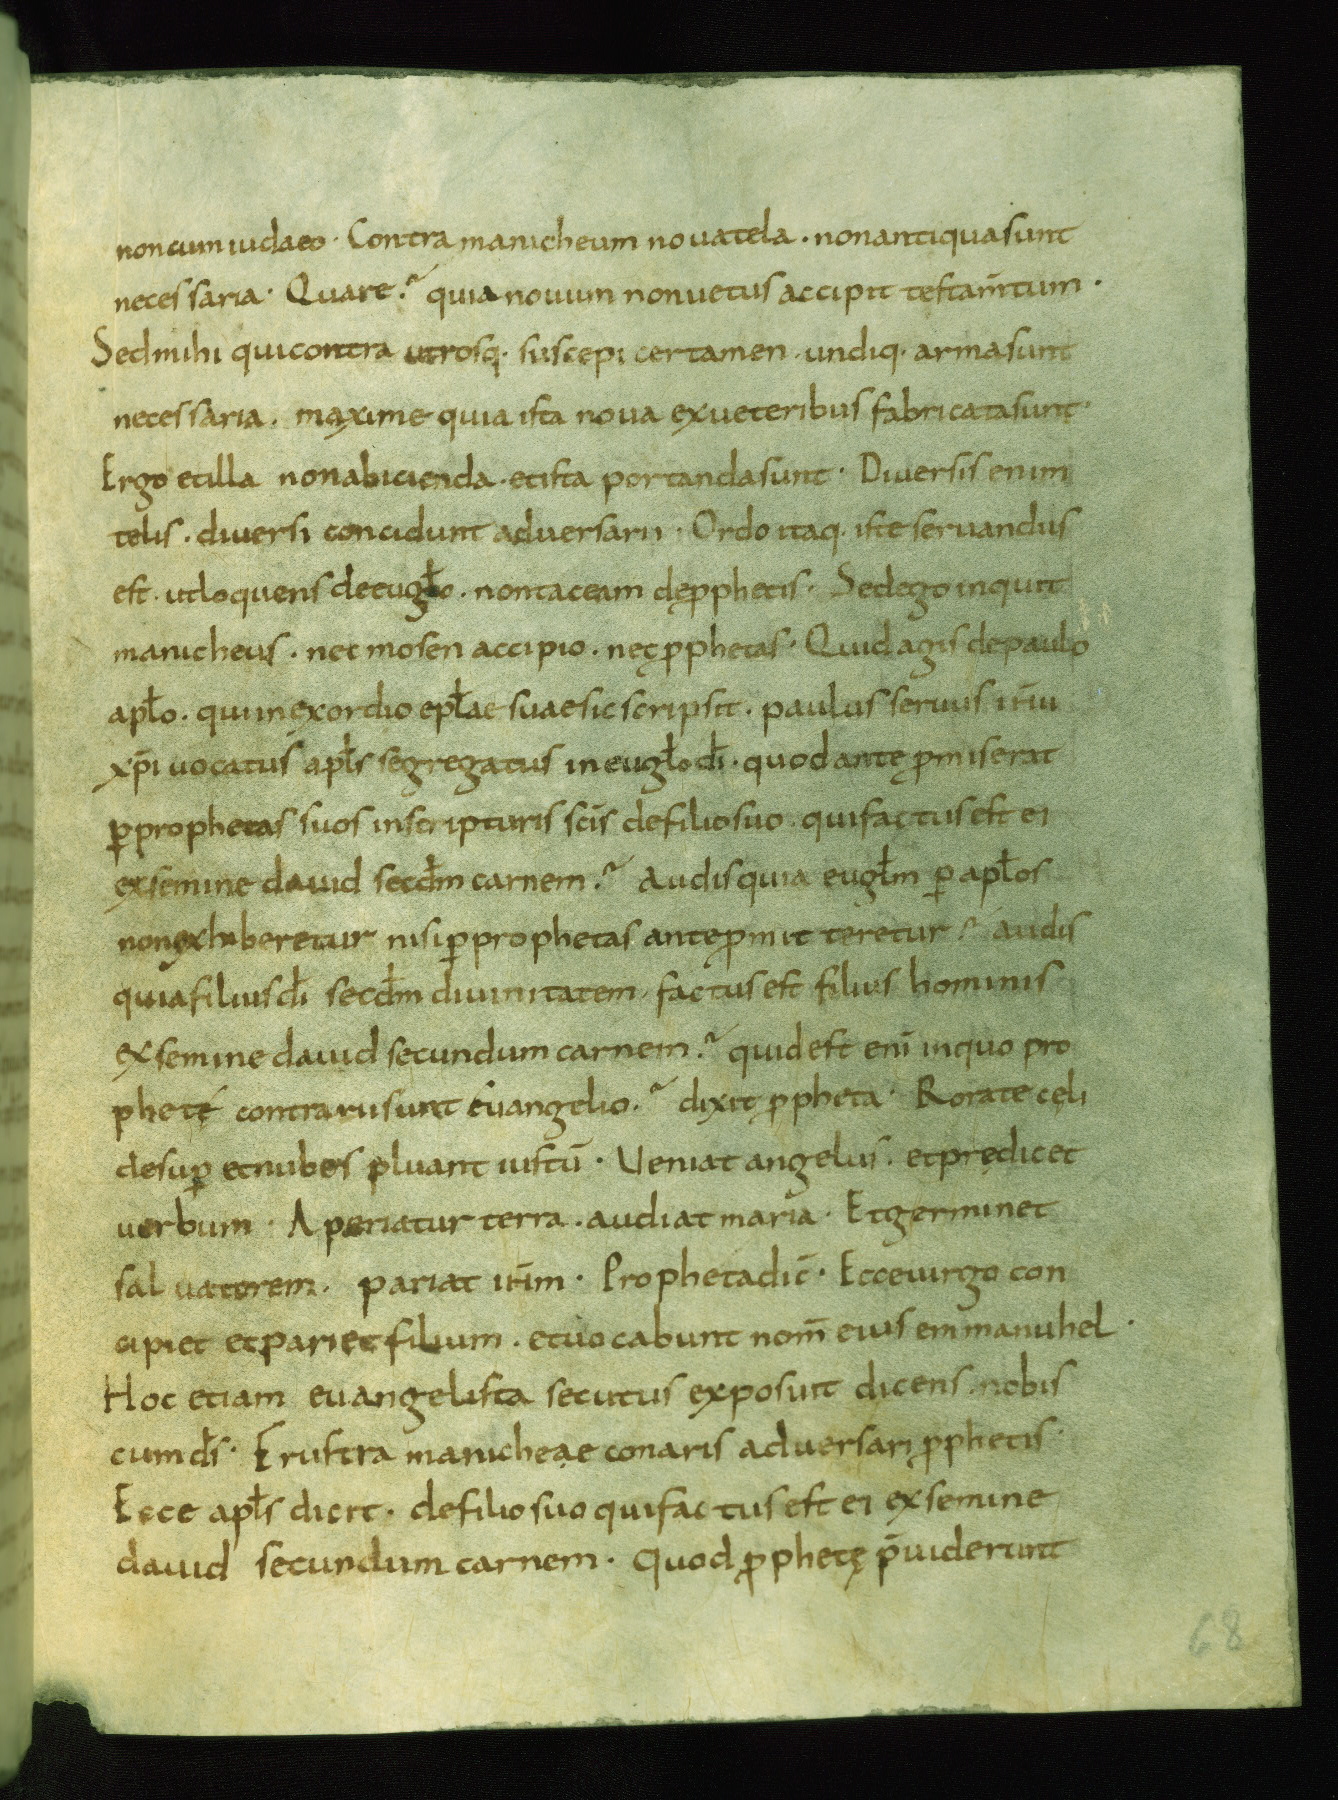 non cum iudaeo · Contra manicheum noua tela · non antiqua sunt
necessaria · Quare? quia nouum non uetus accipit testam̅tum ·
Sed mihi qui contra utrosq· suscepi certamen · undiq· arma sunt
necessaria · maxime quia ista noua ex ueteribus fabricata sunt ·
Ergo et illa non abicienda · et ista portanda sunt · Diuersis enim
telis · diuersi concidunt aduersarii · Ordo itaq· iste seruandus
est · ut loquens de eugło · non taceam de ꝓphetis · Sed ego inquit
manicheus · nec mosen accipio · nec ꝓphetas · Quid agis de paulo
apło · qui in exordio epłae suae sic scripsit · paulus seruus ih̅u
xp̅i uocatus apłs segregatus in eugło di̅ · quod ante ꝓmiserat
ꝑ prophetas suos in scripturis sc̅is de filio suo · qui factus est ei
ex semine dauid secd̅m carnem? Audis quia eugłm ꝑ apłos
non exhiberetur nisi ꝑ prophetas ante ꝓmitteretur? audis
quia filius di̅ secd̅m diuinitatem · factus est filius hominis
ex semine dauid secundum carnem? quid est eni̅ in quo pro
phetę contrarii sunt euangelio? dixit ꝓpheta · Rorate cęli
desuꝑ et nubes pluant iustu̅ · Ueniat angelus · et prędicet
uerbum · Aperiatur terra · audiat maria · Et germinet
saluatorem · pariat ih̅m · Propheta dic̅ · Ecce uirgo con
cipiet et pariet filium · et uocabunt nom̅ eius emmanuhel ·
Hoc etiam euangelista secutus exposuit dicens · nobis
cum ds̅ · Frustra manicheae conaris aduersari ꝓphetis ·
Ecce apłs dicit · de filio suo qui factus est ei ex semine
dauid secundum carnem · quod ꝓphetę p̅uiderunt
68